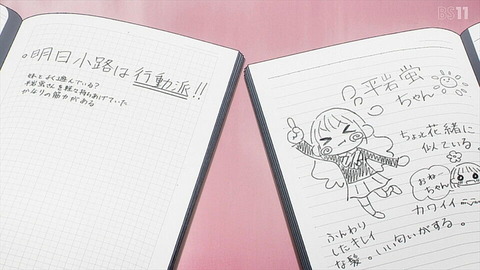 BS11
。明日小路は行動派!!
妹とよく遊んでいる?
平岩蛍さんを軽々持ちあげていた
かなりの筋力がある
平岩蛍
ちゃん
ちょっと花緒に
似ている
おねー
ちゃん
カワイイ
ふんわり
したキレイ
な髪。いい匂いがする。